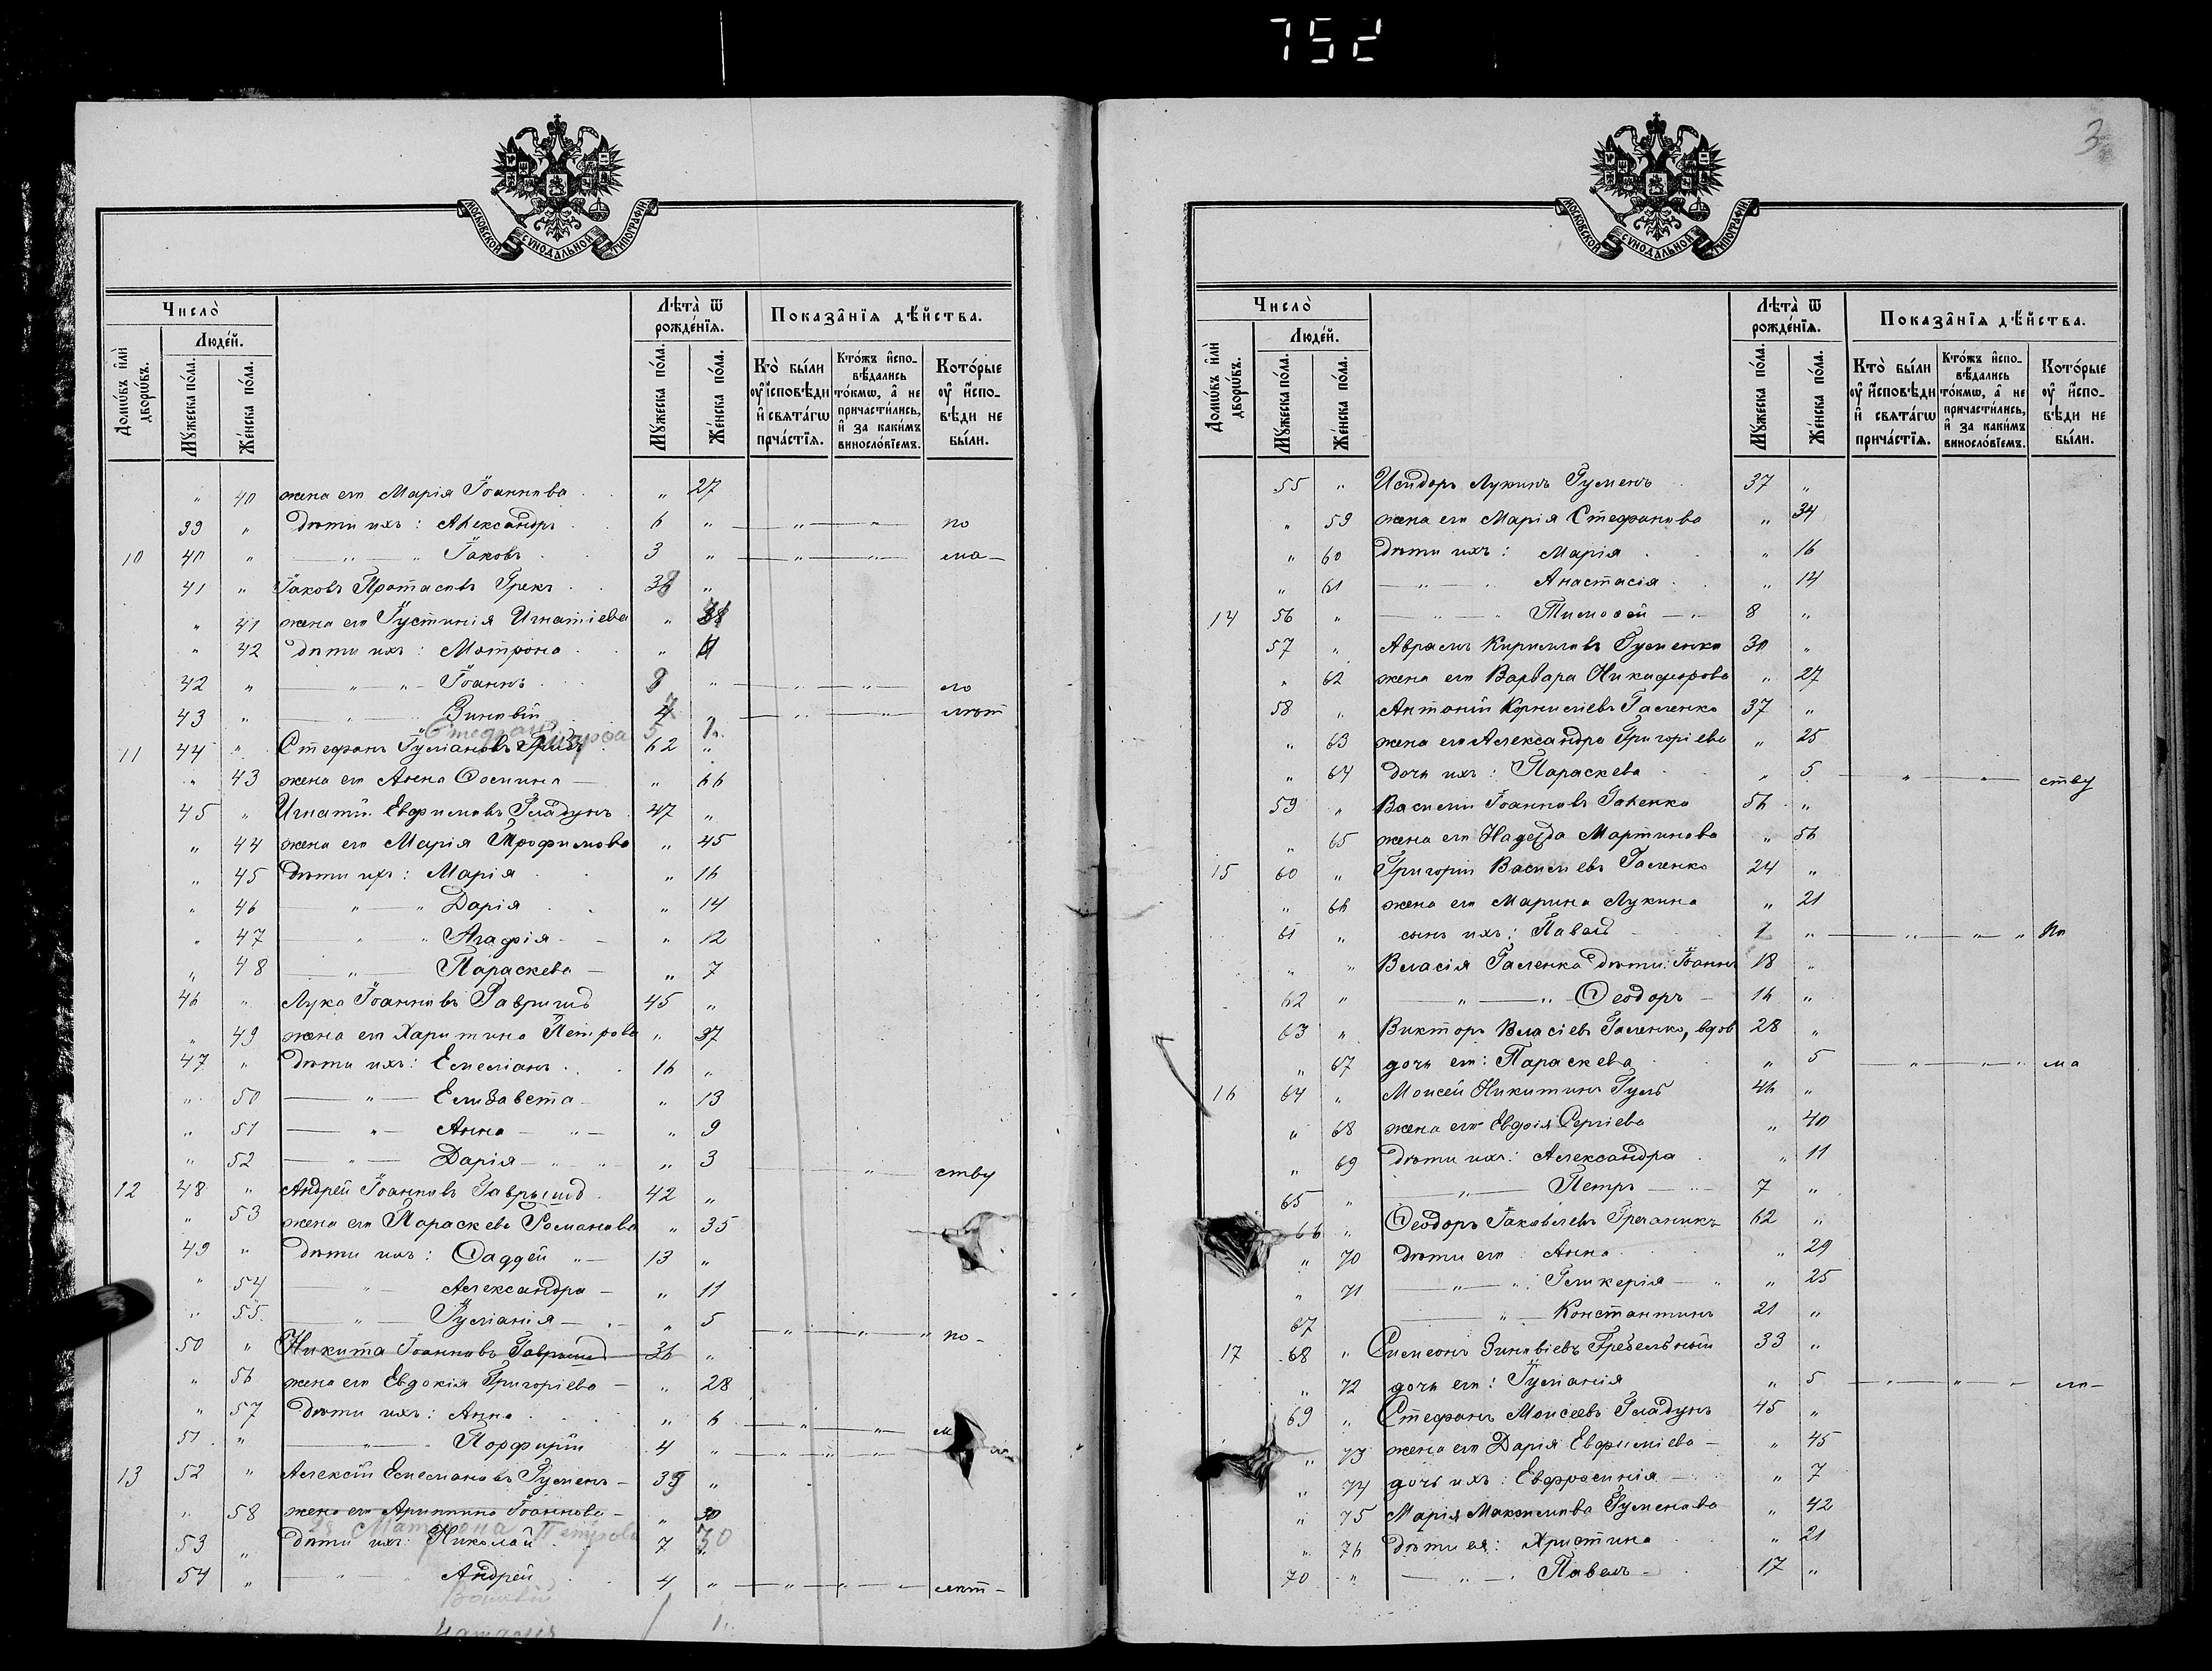 752
МОСКОВСКОЙ СѴНОДАЛЬНОЙ ТИПОГРАФІИ
Число̀
Люде́й.
Домѡ́въ и҆лѝ дворѡ́въ.
Му́жеска по́ла.
Же́нска по́ла.
Лѣта̀ ѿ рожде́нїѧ.
Му́жеска по́ла.
Же́нска по́ла.
Показа̑нїѧ дѣ́йства.
Кто̀ бы́ли ᲂу҆ и҆сповѣди и҆ свѧта́гѡ прича́стїѧ.
Кто́жъ и҆спо-вѣ́дались то́кмѡ, а҆ не причасти́лись, и҆ за каки́мъ винослові́емъ.
Кото́рые ᲂу҆ и҆спо-вѣди не бы́ли.
„ 40 жена его Марія Іоаннова „ 27
39 „ Дѣти ихъ: Александръ 6 „ — „ — „ по
10 40 „ — „ — „ Іаковъ 3 „ — „ — „ — ма-
41 „ Іаковъ Протасовъ Грекъ 38 „
„ 41 жена его Іустинія Игнатіева „
„ 42 Дѣти ихъ: Матрона „
42 „ — „ — „ Іоаннъ „ — „ — „ — ло
43 „ — „ — „ Зиновій „ — „ — „ — лѣт
Стефанъ 5
11 44 „ Стефанъ Іуліановъ 62 „
„ 43 жена его Анна Фомина — „ 66
45 „ Игнатій Евфимовъ Гладунъ 47 „
„ 44 жена его Марія Трофимова „ 45
„ 45 Дѣти ихъ: Марія „ 16
„ 46 — „ — „ Дарія „ 14
„ 47 — „ — „ Агафія „ 12
„ 48 — „ — Параскева — „ 7
46 „ Лука Іоанновъ Гавришъ 45 „
„ 49 жена его Харитина Петрова „ 37
47 „ Дѣти ихъ: Емеліанъ 16 „
„ 50 — „ — Елизавета „ 13
„ 51 — „ — Анна — „ — „ 9
„ 52 — „ — Дарія — „ — „ 3 — „ — ству
12 48 „ Андрей Іоанновъ Гавришъ 42 „
„ 53 жена его Параскева Романова „ 35
49 „ Дѣти ихъ: Фаддей „ — 13 „
„ 54 — „ — Александра — „ 11
„ 55 — „ — Іуліанія — „ 5 — „ — „ — „ по-
50 „ Никита Іоанновъ Гавришъ 36 „
„ 56 жена его Евдокія Григоріева — „ 28
„ 57 Дѣти ихъ: Анна „ 6 — „ — „ — м
51 „ — „ — „ Порфирій 4 „ — „ — „ —
13 52 „ Алексій Емеліановъ Гуменъ — 39 „
„ 58 жена его Іоаннова — „ 30
2я Матрона Петрова 30
53 „ Дѣти ихъ: Николай 7 „
54 „ — „ — „ Андрей 4 „ — „ — „ — лѣт-
Наталія 1
3
МОСКОВСКОЙ СѴНОДАЛЬНОЙ ТИПОГРАФІИ
Число̀
Люде́й.
Домѡ́въ и҆лѝ дворѡ́въ.
Му́жеска по́ла.
Же́нска по́ла.
Лѣта̀ ѿ рожде́нїѧ.
Му́жеска по́ла.
Же́нска по́ла.
Показа̑нїѧ дѣ́йства.
Кто̀ бы́ли ᲂу҆ и҆сповѣди и҆ свѧта́гѡ прича́стїѧ.
Кто́жъ и҆спо-вѣ́дались то́кмѡ, а҆ не причасти́лись, и҆ за каки́мъ винослові́емъ.
Кото́рые ᲂу҆ и҆спо-вѣди не бы́ли.
55 „ Исидоръ Лукинъ Гуменъ 37 „
„ 59 жена его Марія Стефанова „ 34
„ 60 Дѣти ихъ: Марія „ 16
„ 61 — „ — „ Анастасія „ 14
14 56 „ — „ — „ Тимофей — „ 8 „
57 „ Аврамъ Кирилловъ Гуменко 30 „
„ 62 жена его Варвара Никифорова „ 27
58 „ Антоній Корниліевъ Галенко 37 „
„ 63 жена его Александра Григоріева „ 25
„ 64 дочь ихъ: Параскева „ 5 — „ — „ — ству
59 „ Василій Іоанновъ Галенко 56 „
„ 65 жена его Надежда Мартинова „ 56
15 60 „ Григорій Васильевъ Галенко 24 „
„ 66 жена его Марина Лукина „ 21
61 „ сынъ ихъ: Павелъ 1 „ — „ — „ — „ по
„ „ Власія Галенка дѣти: Іоаннъ 18 „
62 „ — „ — „ Феодоръ — 16 „
63 „ Викторъ Власіевъ Галенко, вдов 28 „
„ 67 дочь его: Параскева „ 5 — „ — „ — ма
16 64 „ Моисей Никитинъ Гуль 46 „
„ 68 жена его Евдокія Сергіева „ 40
„ 69 Дѣти ихъ: Александра „ 11
65 „ — „ — Петръ — „ 7 „
66 „ Феодоръ Іаковлевъ Гречаникъ 62 „
„ 70 Дѣти его: Анна „ 29
„ 71 — „ — „ Гликерія — „ „ 25
67 — „ — Константинъ 21 „
17 68 „ Симеонъ Зиновіевъ Гребельный 33 „
„ 72 дочь его: Іуліанія „ 5 — „ — „ — ло-
69 „ Стефанъ Моисеевъ Гладунъ 45 „
„ 73 жена его Дарія Евфиміева — „ 45
„ 74 дочь ихъ: Евфросинія — „ 7
„ 75 Марія Максимова Гуменова „ 42
„ 76 Дѣти ея: Христина „ 21
70 „ — „ — „ Павелъ — 17 „